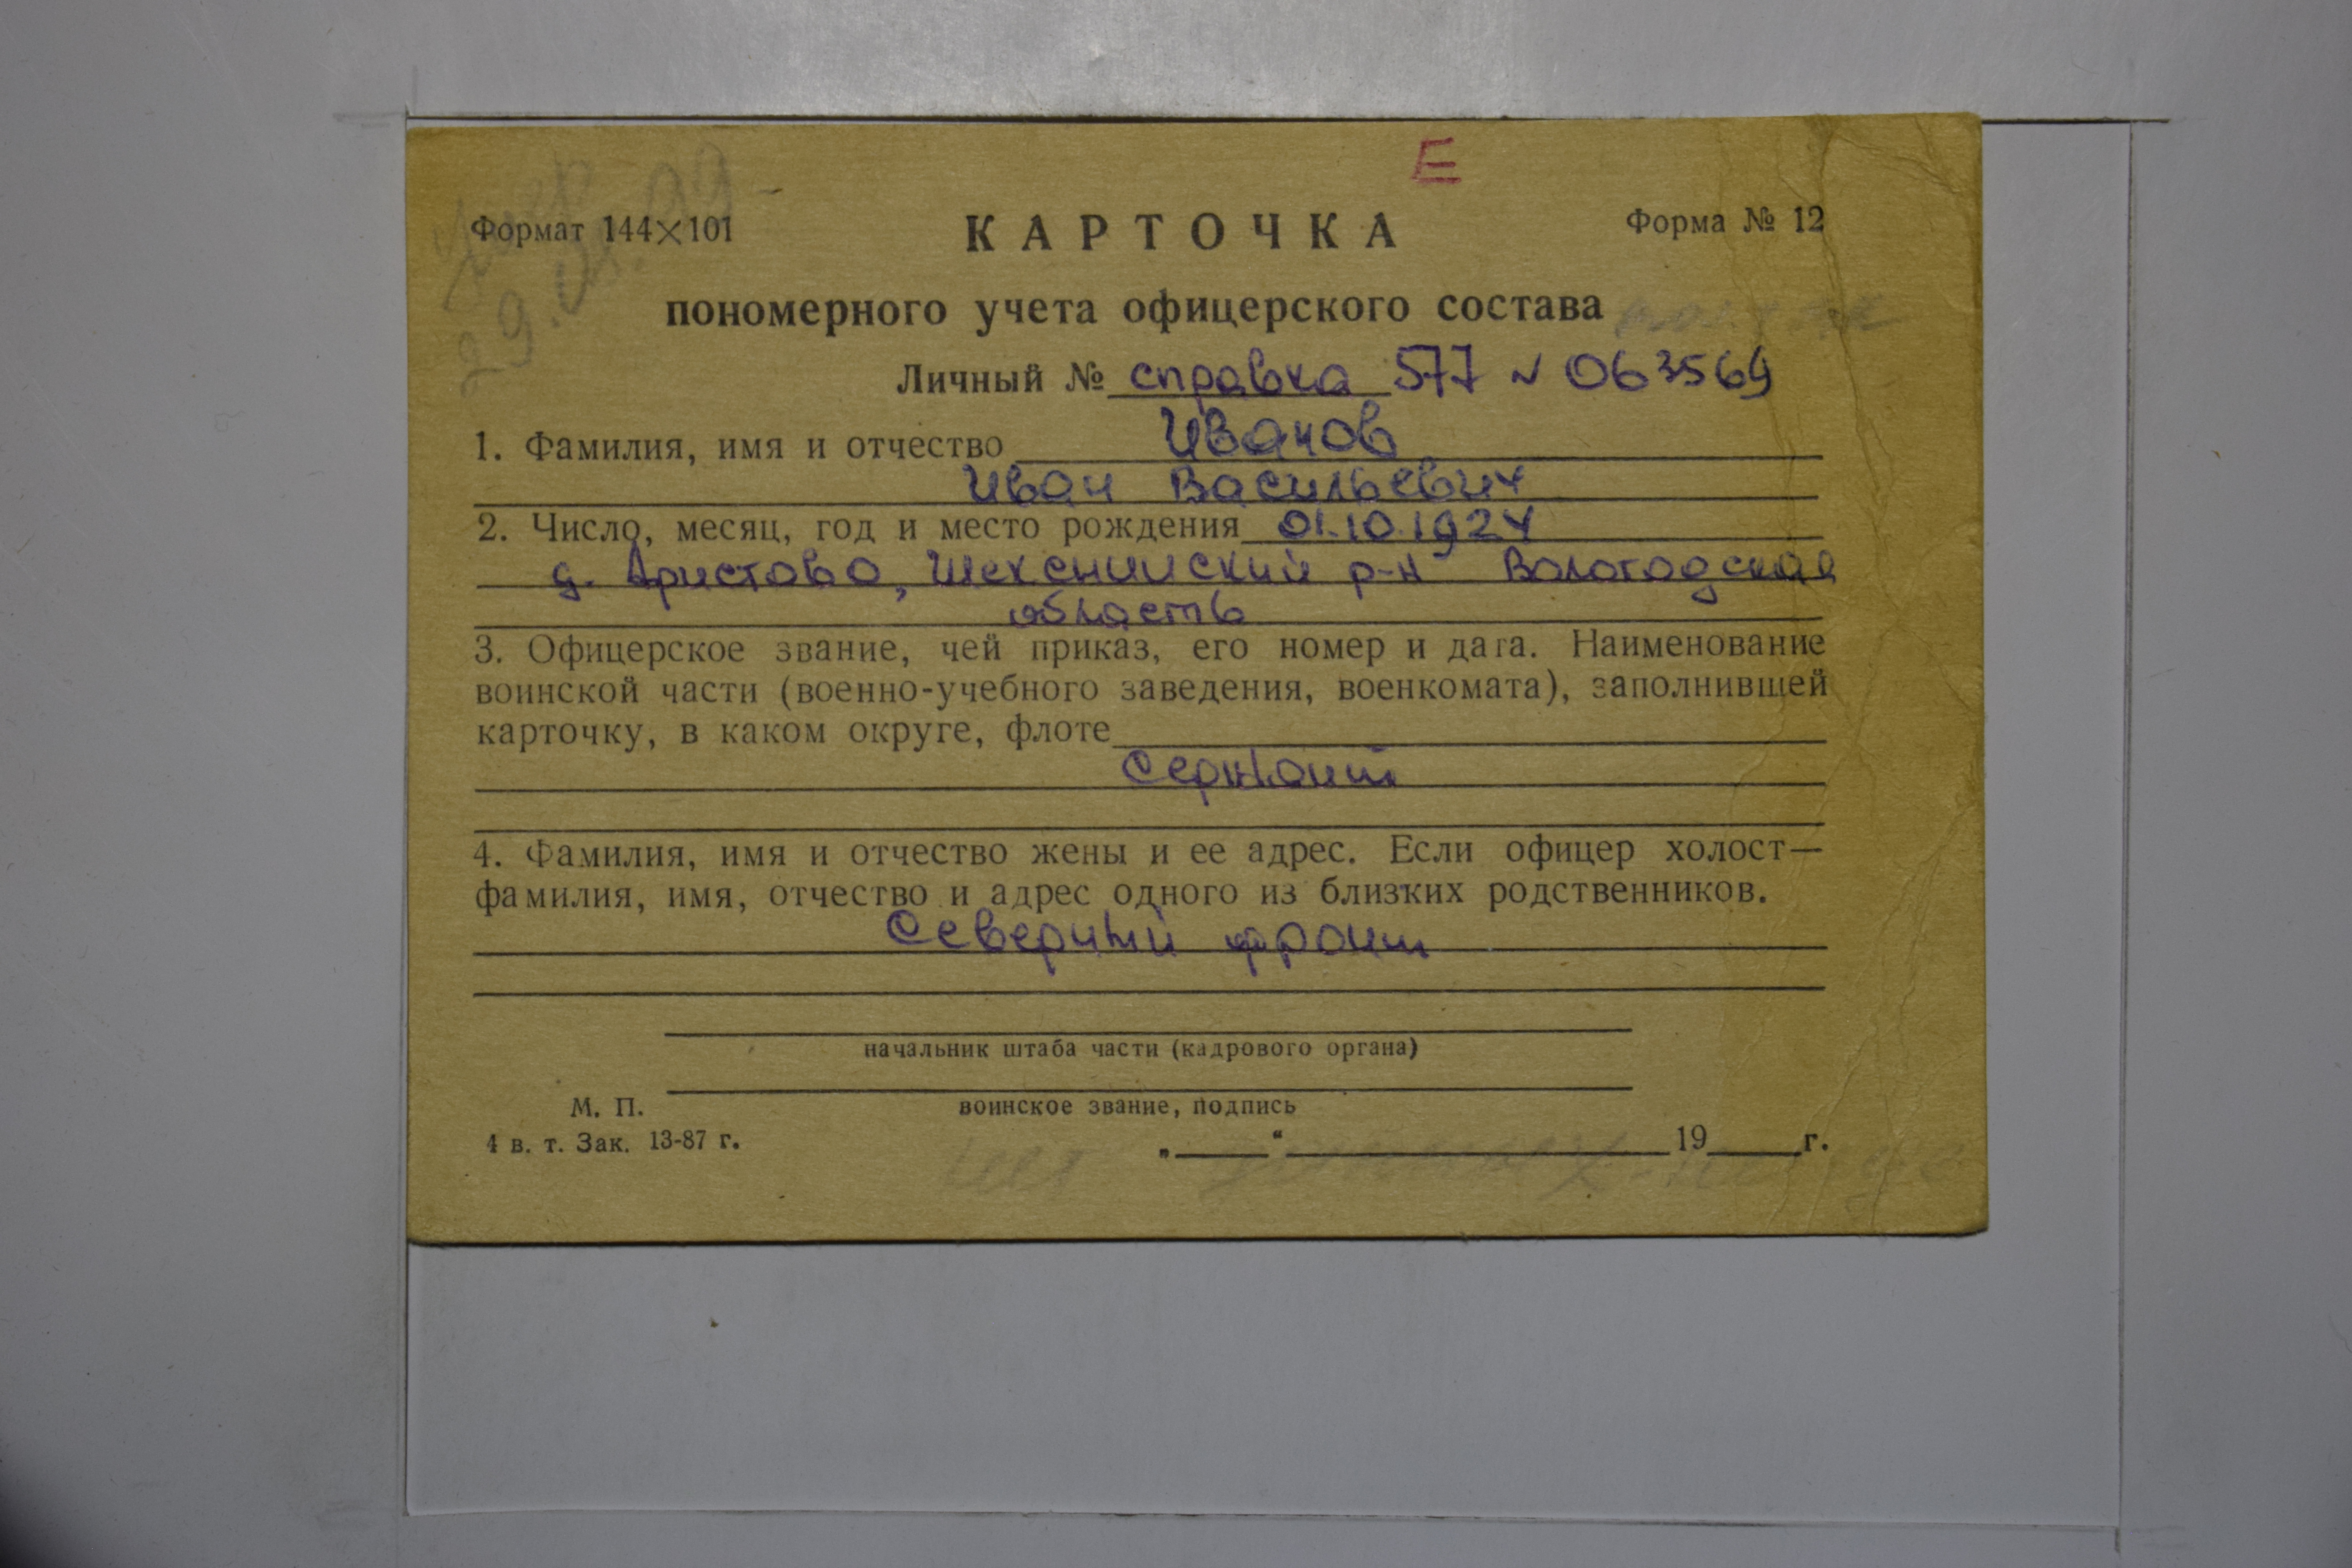 Е
Умер
29.01.99
Формат 144×101
КАРТОЧКА
Форма № 12
пономерного учета офицерского состава
Личный № справка 577 № 063569
1. Фамилия, имя и отчество Иванов
Иван Васильевич
2. Число, месяц, год и место рождения 01.10.1924
д. Аристово, Шекснинский р-н Вологодская
область
3. Офицерское звание, чей приказ, его номер и дата. Наименование
воинской части (военно-учебного заведения, военкомата), заполнившей
карточку, в каком округе, флоте
Сержант
4. Фамилия, имя и отчество жены и ее адрес. Если офицер холост—
фамилия, имя, отчество и адрес одного из близких родственников.
Северный фронт
начальник штаба части (кадрового органа)
М. П.
воинское звание, подпись
4 в. т. Зак. 13-87 г.
„ “ 19 г.